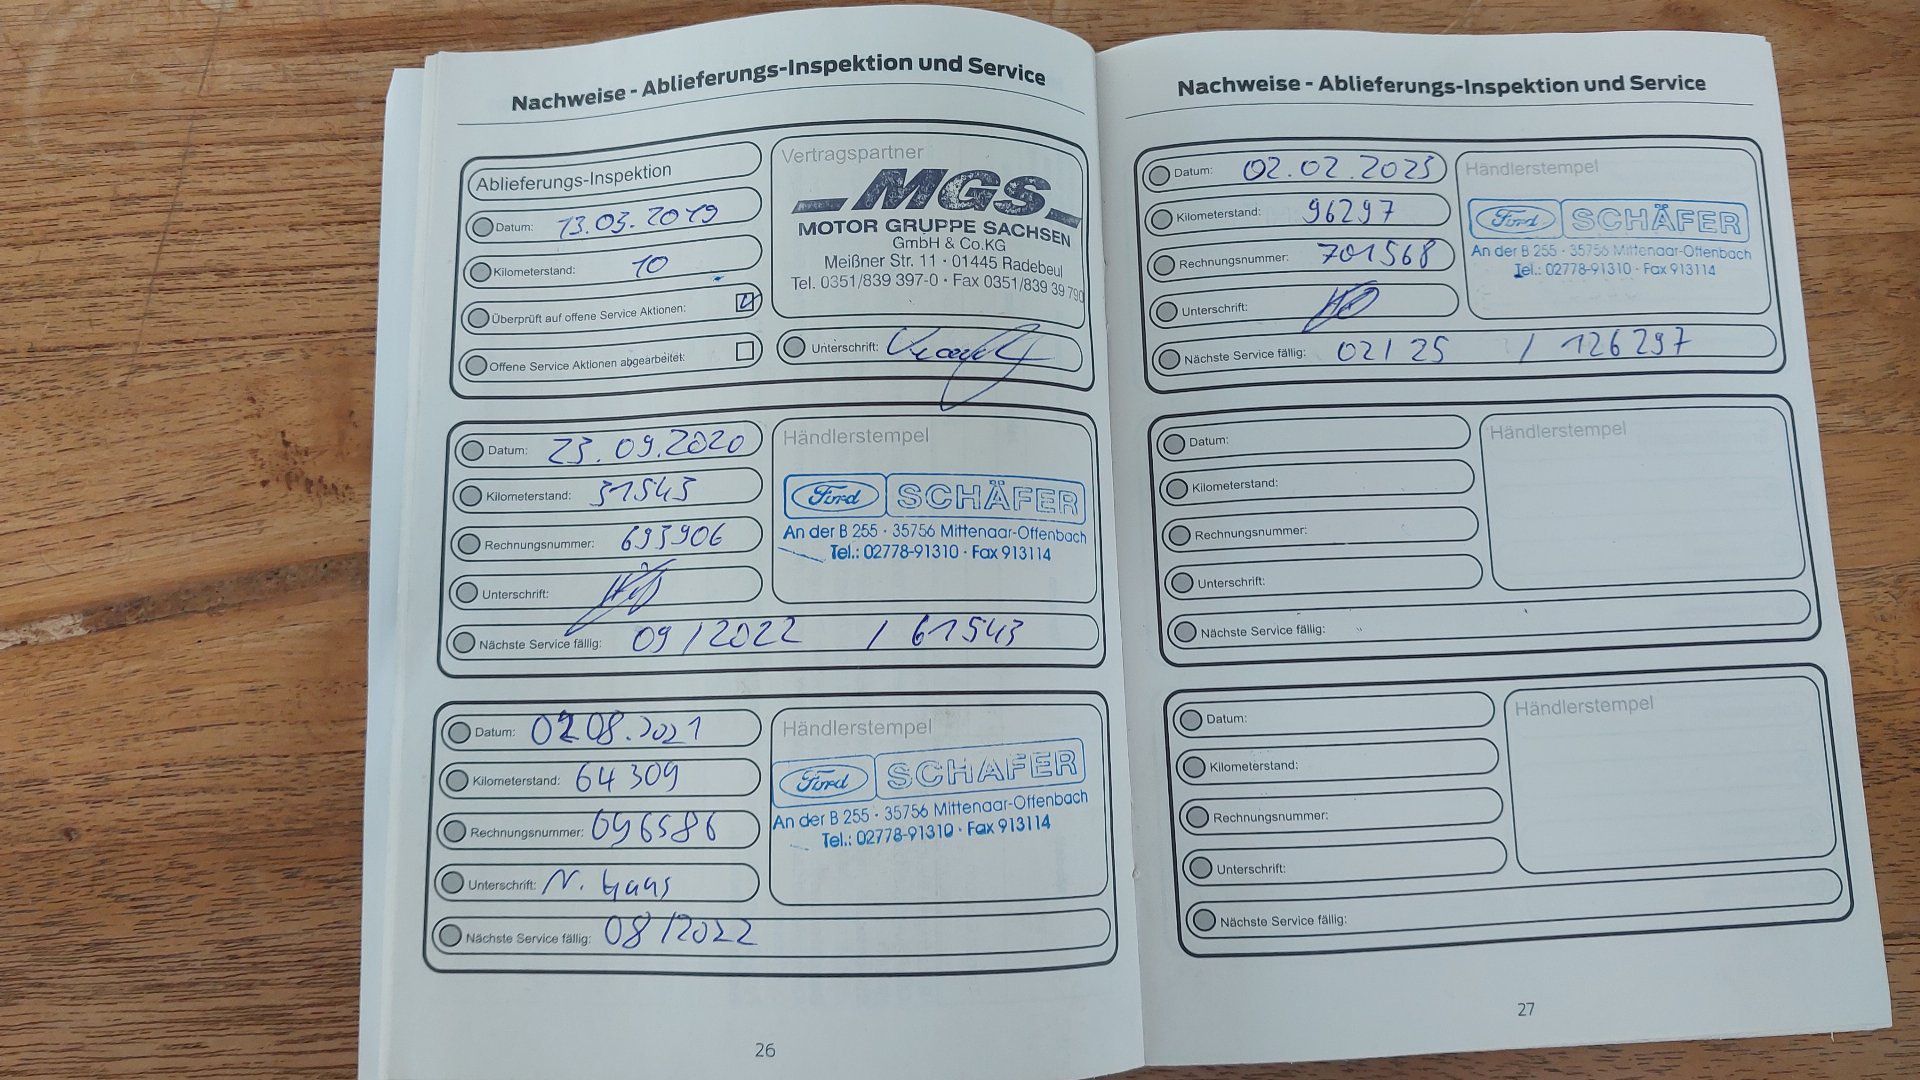 Nachweise - Ablieferungs-Inspektion und Service
Ablieferungs-Inspektion
Datum: 13.03.2019
Kilometerstand: 10
Überprüft auf offene Service Aktionen:
Offene Service Aktionen abgearbeitet:
Vertragspartner
MGS
MOTOR GRUPPE SACHSEN
GmbH & Co.KG
Meißner Str. 11 · 01445 Radebeul
Tel. 0351/839 397-0 · Fax 0351/839 39 790
Unterschrift:
Datum: 23.09.2020
Kilometerstand: 31543
Rechnungsnummer: 693906
Unterschrift:
Nächste Service fällig: 09/2022 / 61543
Händlerstempel
Ford SCHÄFER
An der B 255 · 35756 Mittenaar-Offenbach
Tel.: 02778-91310 · Fax 913114
Datum: 02 08.2021
Kilometerstand: 64309
Rechnungsnummer: 096586
Unterschrift: N. Haas
Nächste Service fällig: 08/2022
Händlerstempel
Ford SCHÄFER
An der B 255 · 35756 Mittenaar-Offenbach
Tel.: 02778-91310 · Fax 913114
26
Nachweise - Ablieferungs-Inspektion und Service
Datum: 02.02.2023
Kilometerstand: 96297
Rechnungsnummer: 701568
Unterschrift:
Nächste Service fällig: 02/25 / 126297
Händlerstempel
Ford SCHÄFER
An der B 255 · 35756 Mittenaar-Offenbach
Tel.: 02778-91310 · Fax 913114
Datum:
Kilometerstand:
Rechnungsnummer:
Unterschrift:
Nächste Service fällig:
Händlerstempel
Datum:
Kilometerstand:
Rechnungsnummer:
Unterschrift:
Nächste Service fällig:
Händlerstempel
27